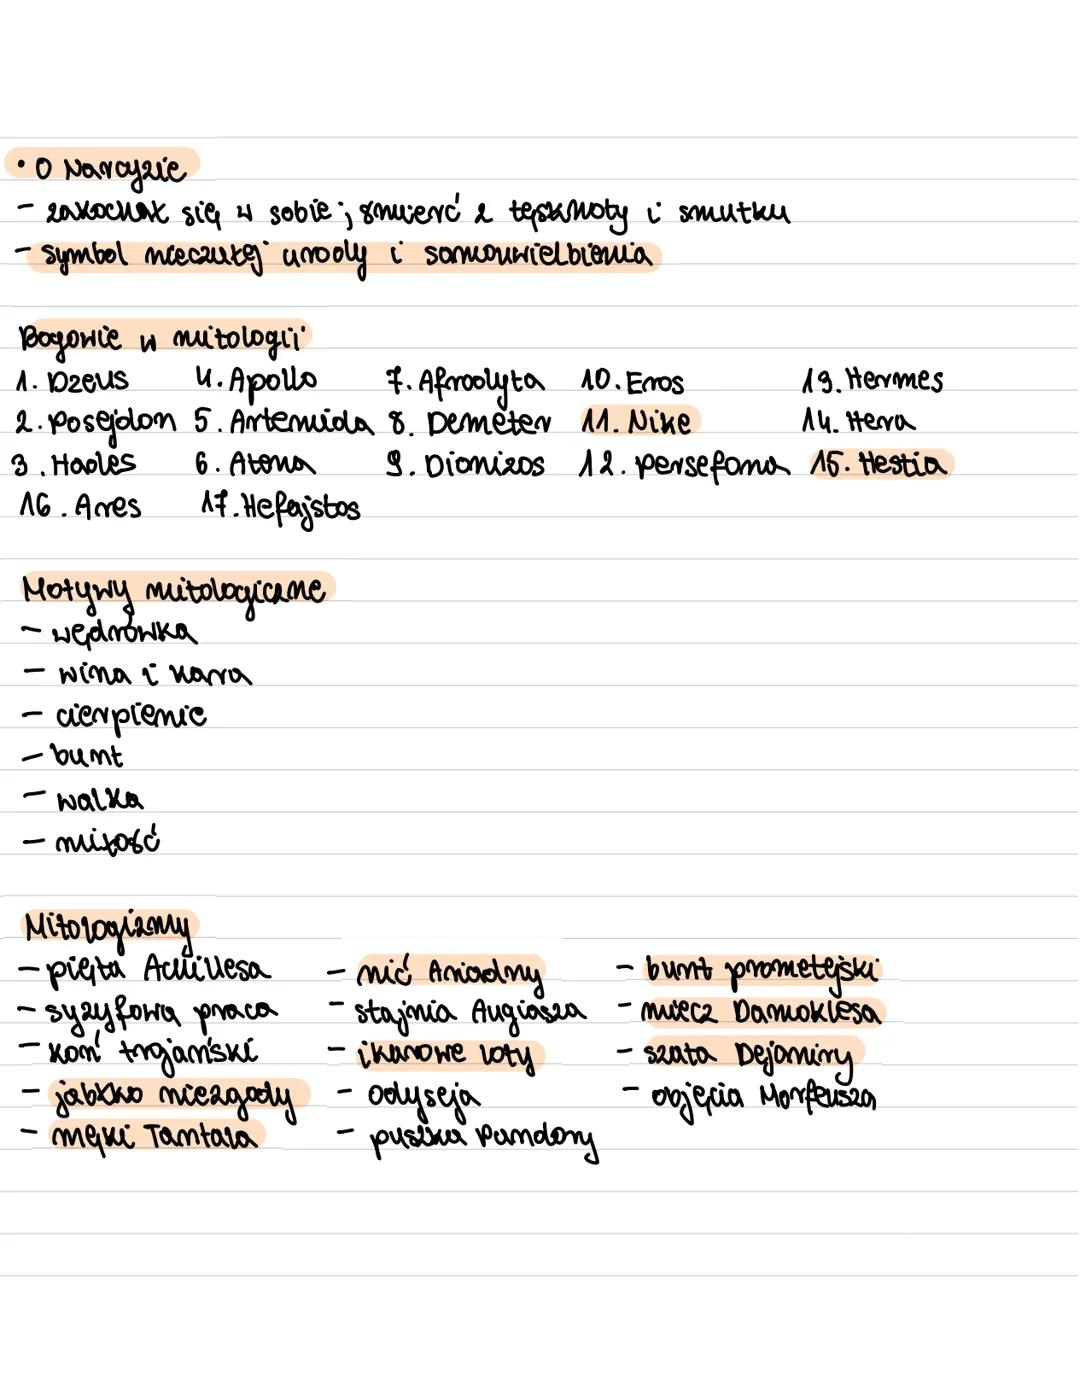 • O Narcyzie
- zakochał się w sobie; śmierć z tęsknoty i smutku
- symbol nieczułej urody i samouwielbienia
Bogowie w mitologii
1. Dzeus 4. Apollo 7. Afrodyta 10. Eros 13. Hermes
2. Posejdon 5. Artemida 8. Demeter 11. Nike 14. Hera
3. Hades 6. Atena 9. Dionizos 12. Persefona 15. Hestia
16. Ares 17. Hefajstos
Motywy mitologiczne
- wędrówka
- wina i kara
- cierpienie
- bunt
- walka
- miłość
Mitologizmy
- pięta Achillesa - nić Ariadny - bunt prometejski
- syzyfowa praca - stajnia Augiasza - miecz Damoklesa
- koń trojański - ikarowe loty - szata Dejaniry
- jabłko niezgody - odyseja - objęcia Morfeusza
- męki Tantala - puszka Pandory